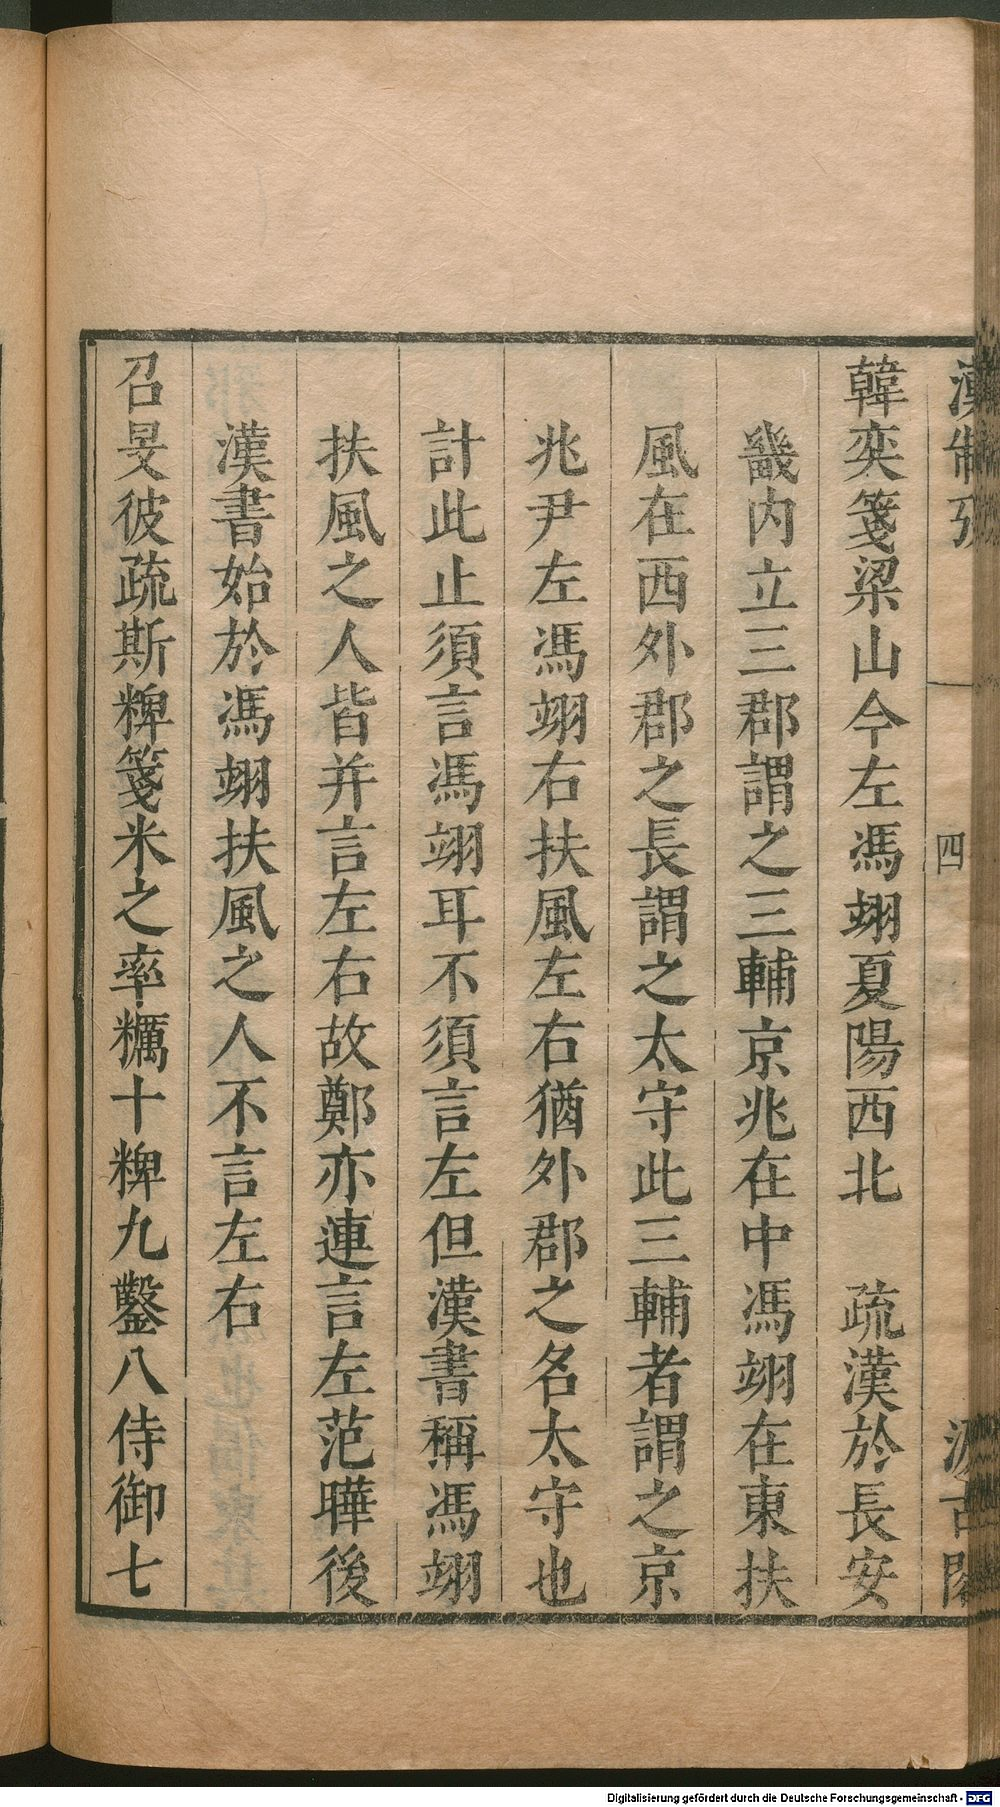 漢制攷
四
汲古閣
韓奕箋梁山今左馮翊夏陽西北　疏漢於長安
畿内立三郡謂之三輔京兆在中馮翊在東扶
風在西外郡之長謂之太守此三輔者謂之京
兆尹左馮翊右扶風左右猶外郡之名太守也
計此止須言馮翊耳不須言左但漢書稱馮翊
扶風之人皆并言左右故鄭亦連言左范曄後
漢書始於馮翊扶風之人不言左右
召旻彼疏斯粺箋米之率糲十粺九鑿八侍御七
Digitalisierung gefördert durch die Deutsche Forschungsgemeinschaft - DFG